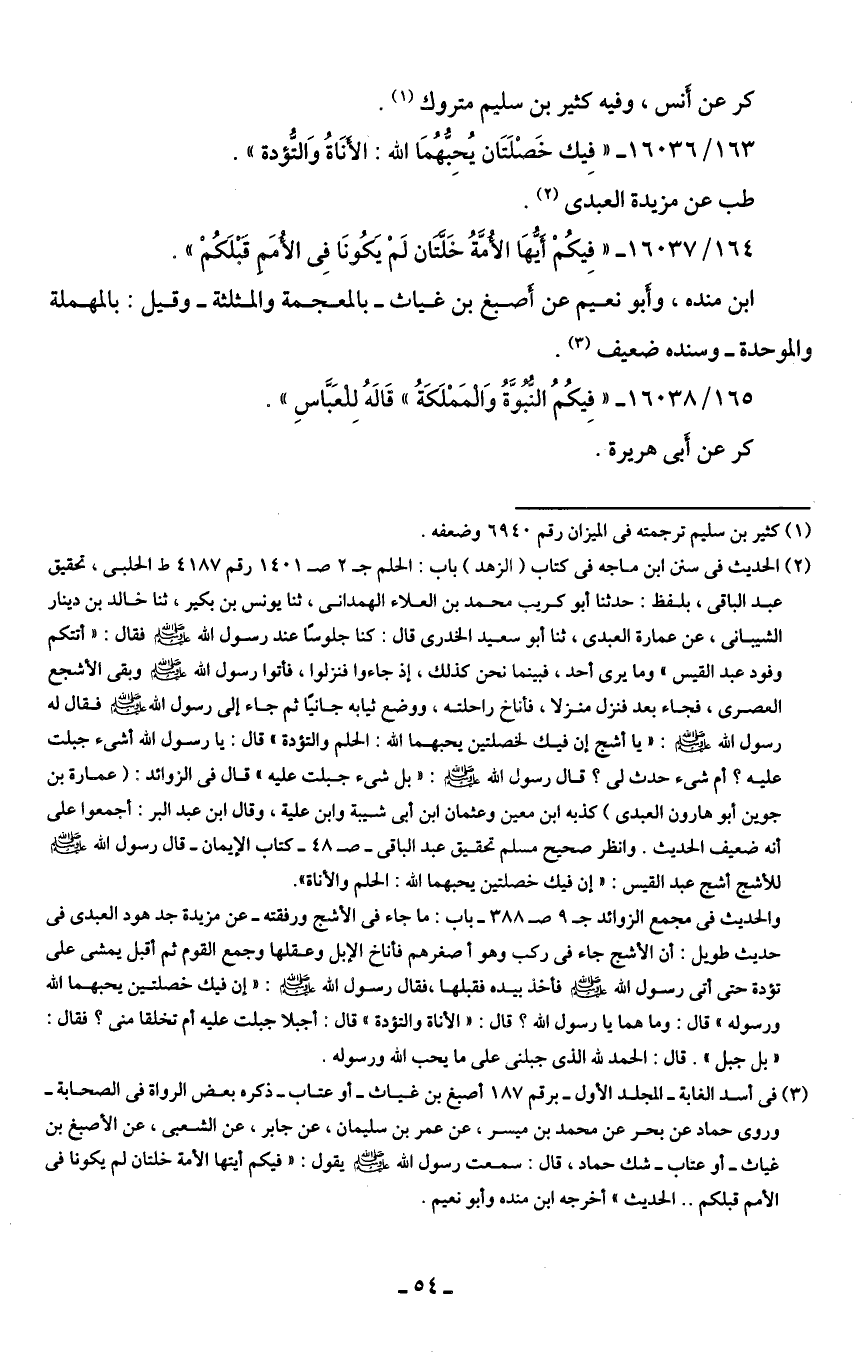 كر عن أَنس ، وفيه كثير بن سليم متروك (١) .
١٦٣/ ١٦٠٣٦ـ « فِيك خَصْلَتَان يُحِبُّهُمَا الله : الأَنَاةُ وَالتُّؤدة » .
طب عن مزيدة العبدى (٢) .
١٦٤/ ١٦٠٣٧ـ « فِيكُمْ أَيُّهَا الأُمَّةُ خَلَّتَان لَمْ يَكُونَا فِى الأُمَمِ قَبْلَكُمْ » .
ابن منده ، وأَبو نعيم عن أَصبغ بن غياث ـ بالمعجمة والمثلثة ـ وقيل : بالمهملة
والموحدة ـ وسنده ضعيف (٣) .
١٦٥/ ١٦٠٣٨ـ « فِيكُمُ النُّبُوَّةُ وَالْمَمْلَكَةُ » قَالَهُ لِلْعَبَّاسِ » .
كر عن أَبى هريرة .
(١) كثير بن سليم ترجمته فى الميزان رقم ٦٩٤٠ وضعفه .
(٢) الحديث فى سنن ابن ماجه فى كتاب ( الزهد ) باب : الحلم جـ ٢ صـ ١٤٠١ رقم ٤١٨٧ ط الحلبى ، تحقيق
عبد الباقى ، بلفظ : حدثنا أبو كريب محمد بن العلاء الهمدانى ، ثنا يونس بن بكير ، ثنا خالد بن دينار
الشيبانى ، عن عمارة العبدى ، ثنا أبو سعيد الخدرى قال : كنا جلوسًا عند رسول الله ﷺ فقال : « أتتكم
وفود عبد القيس » وما يرى أحد ، فبينما نحن كذلك ، إذ جاءوا فنزلوا ، فأتوا رسول الله ﷺ وبقى الأشجع
العصرى ، فجاء بعد فنزل منزلا ، فأناخ راحلته ، ووضع ثيابه جانبًا ثم جاء إلى رسول الله ﷺ فقال له
رسول الله ﷺ : « يا أشج إن فيك لخصلتين يحبهما الله : الحلم والتؤدة » قال : يا رسول الله أشىء جبلت
عليه ؟ أم شىء حدث لى ؟ قال رسول الله ﷺ : « بل شىء جبلت عليه » قال فى الزوائد : ( عمارة بن
جوين أبو هارون العبدى ) كذبه ابن معين وعثمان ابن أبى شيبة وابن علية ، وقال ابن عبد البر : أجمعوا على
أنه ضعيف الحديث . وانظر صحيح مسلم تحقيق عبد الباقى ـ صـ ٤٨ ـ كتاب الإيمان ـ قال رسول الله ﷺ
للأشج أشج عبد القيس : « إن فيك خصلتين يحبهما الله : الحلم والأناة».
والحديث فى مجمع الزوائد جـ ٩ صـ ٣٨٨ ـ باب : ما جاء فى الأشج ورفقته ـ عن مزيدة جد هود العبدى فى
حديث طويل : أن الأشج جاء فى ركب وهو أصغرهم فأناخ الإبل وعقلها وجمع القوم ثم أقبل يمشى على
تؤدة حتى أتى رسول الله ﷺ فأخذ بيده فقبلها ،فقال رسول الله ﷺ : « إن فيك خصلتين يحبهما الله
ورسوله » قال : وما هما يا رسول الله ؟ قال : « الأناة والتؤدة » قال : أجبلا جبلت عليه أم تخلقا منى ؟ فقال :
« بل جبل » . قال : الحمد لله الذى جبلنى على ما يحب الله ورسوله .
(٣) فى أسد الغابة ـ المجلد الأول ـ برقم ١٨٧ أصبغ بن غياث ـ أو عتاب ـ ذكره بعض الرواة فى الصحابة ـ
وروى حماد عن بحر عن محمد بن ميسر ، عن عمر بن سليمان ، عن جابر ، عن الشعبى ، عن الأصبغ بن
غياث ـ أو عتاب ـ شك حماد ، قال : سمعت رسول الله ﷺ يقول : « فيكم أيتها الأمة خلتان لم يكونا فى
الأمم قبلكم .. الحديث » أخرجه ابن منده وأبو نعيم .
ـ ٥٤ ـ